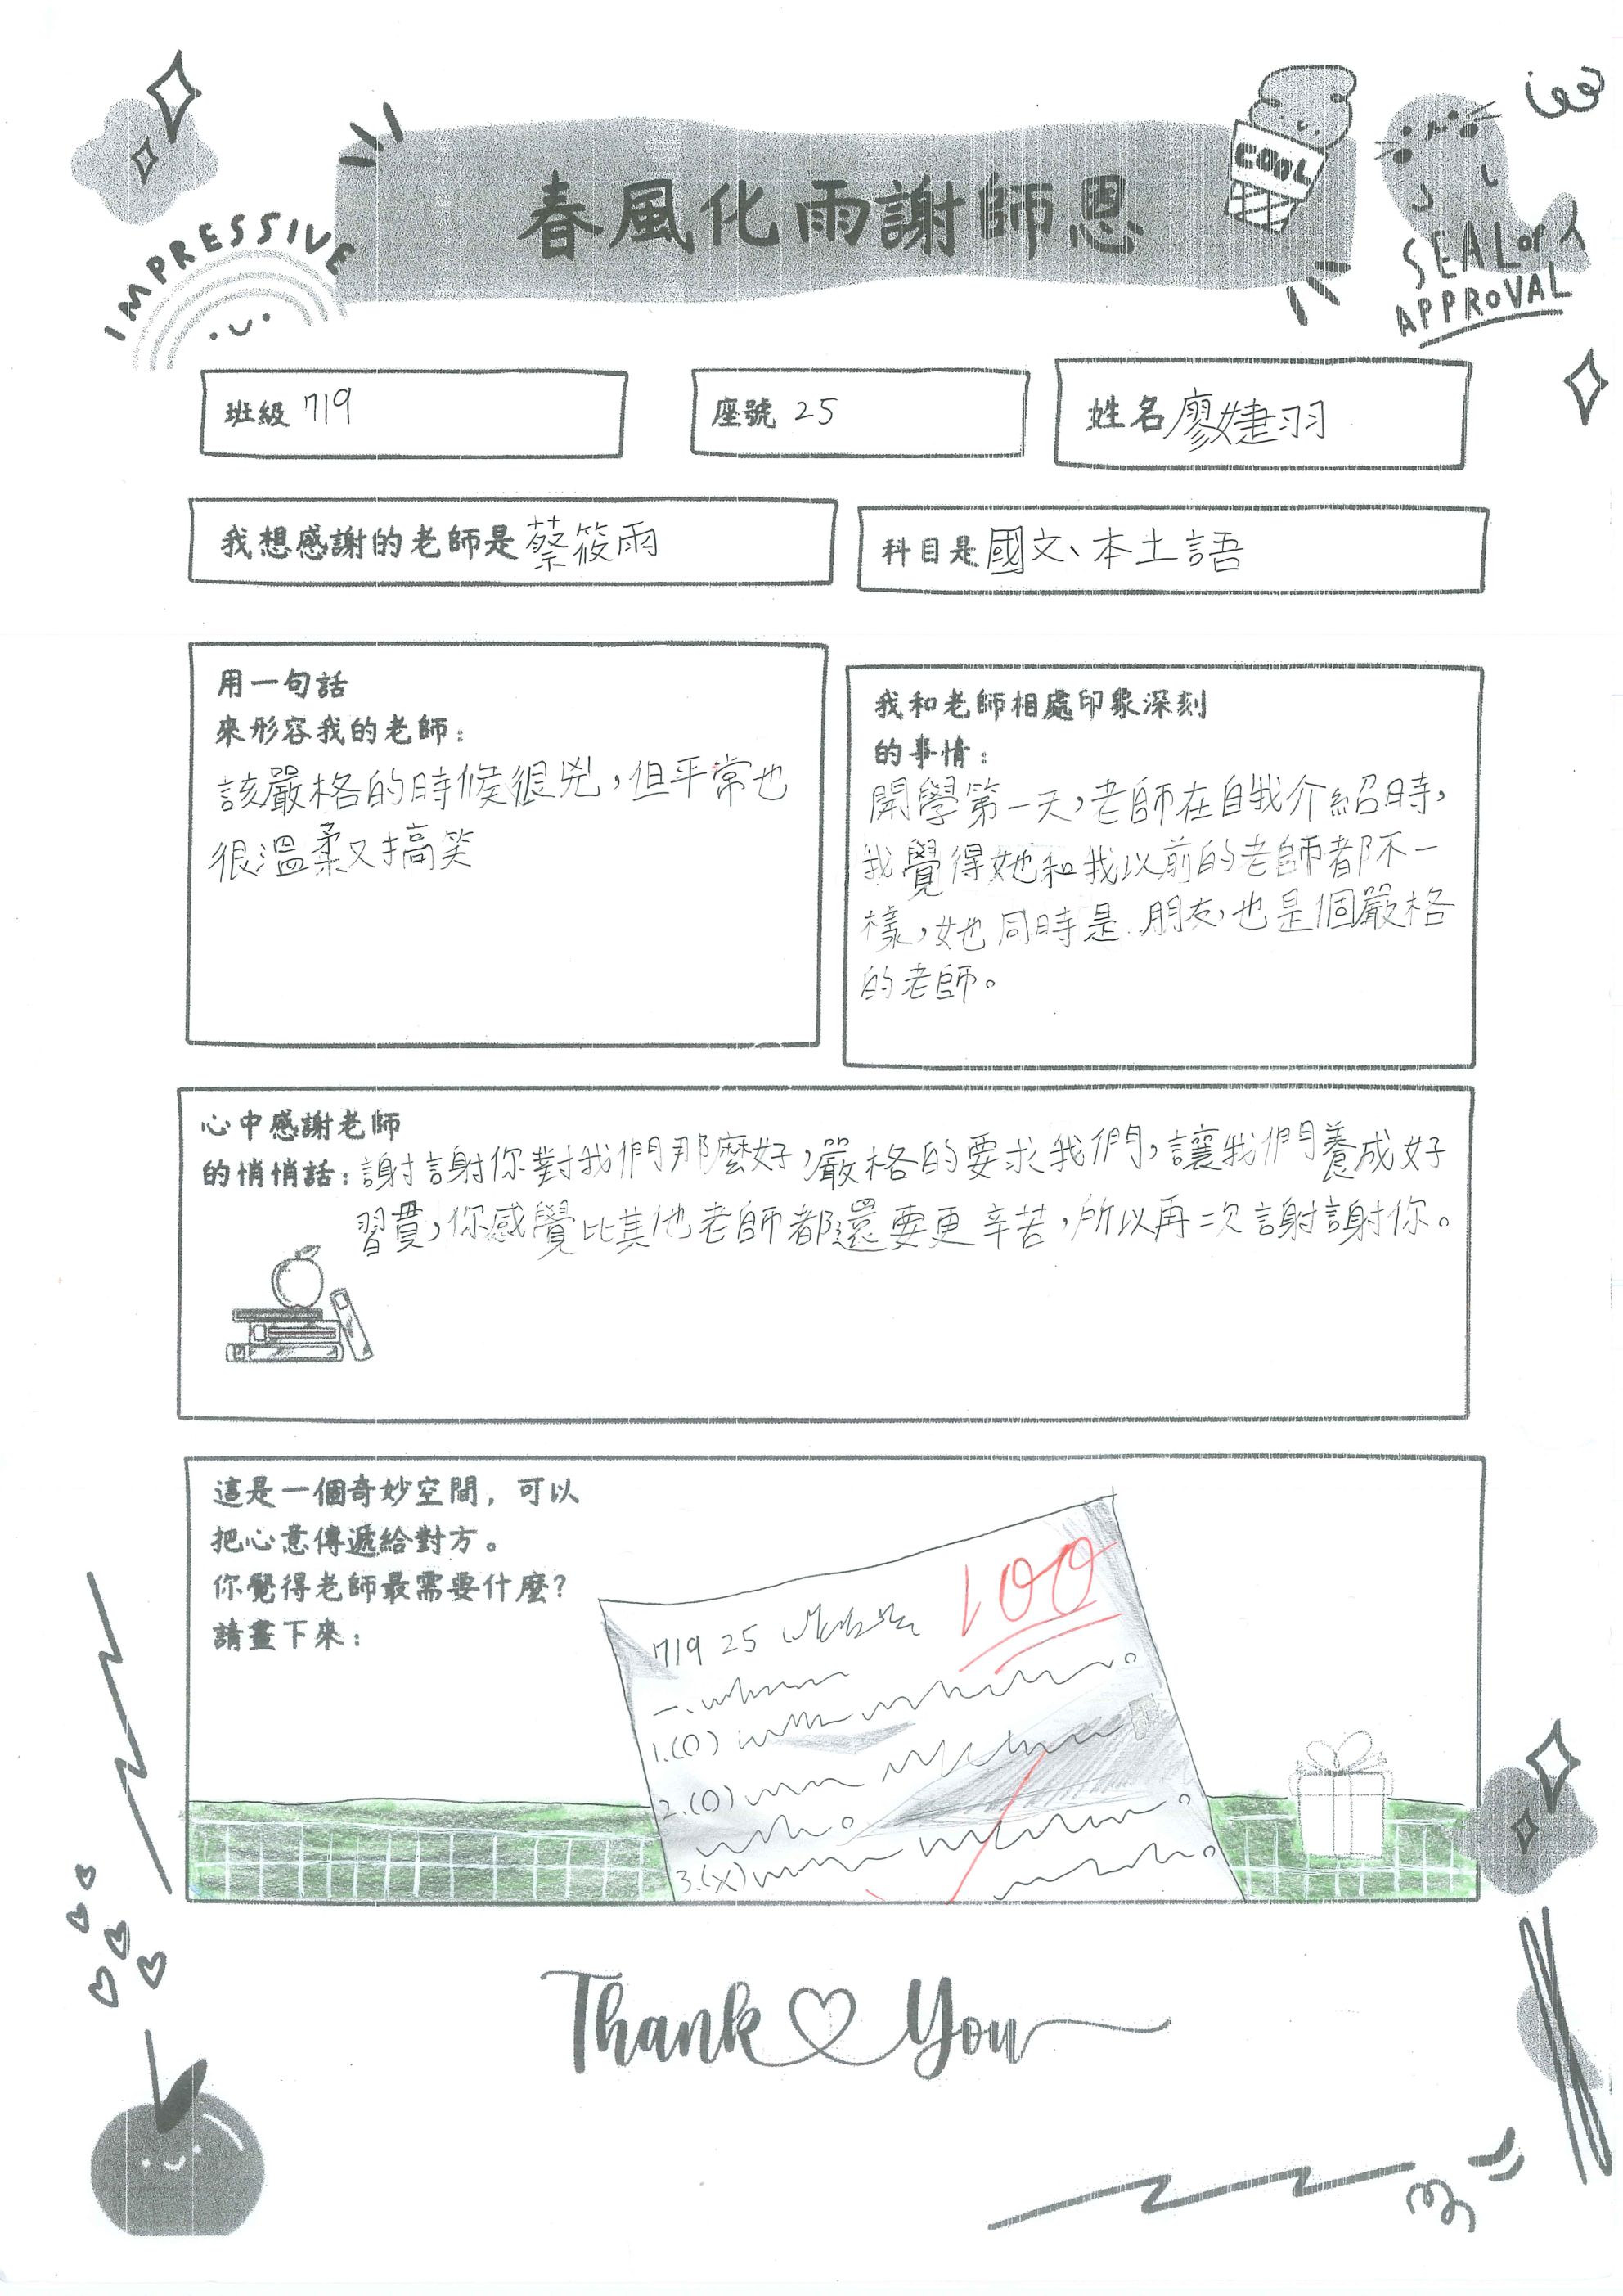 IMPRESSIVE
春風化雨謝師恩
COOL
SEAL OF
APPROVAL
班級 719
座號 25
姓名 廖婕羽
我想感謝的老師是 蔡筱雨
科目是 國文、本土語
用一句話
來形容我的老師：
該嚴格的時候很兇，但平常也
很溫柔又搞笑
我和老師相處印象深刻
的事情：
開學第一天，老師在自我介紹時，
我覺得她和我以前的老師都不一
樣，她同時是朋友，也是個嚴格
的老師。
心中感謝老師
的悄悄話：謝謝你對我們那麼好，嚴格的要求我們，讓我們養成好
習慣，你感覺比其他老師都還要更辛苦，所以再次謝謝你。
這是一個奇妙空間，可以
把心意傳遞給對方。
你覺得老師最需要什麼？
請畫下來：
100
719 25
一、
1.(O)
2.(O)
3.(X)
Thank You